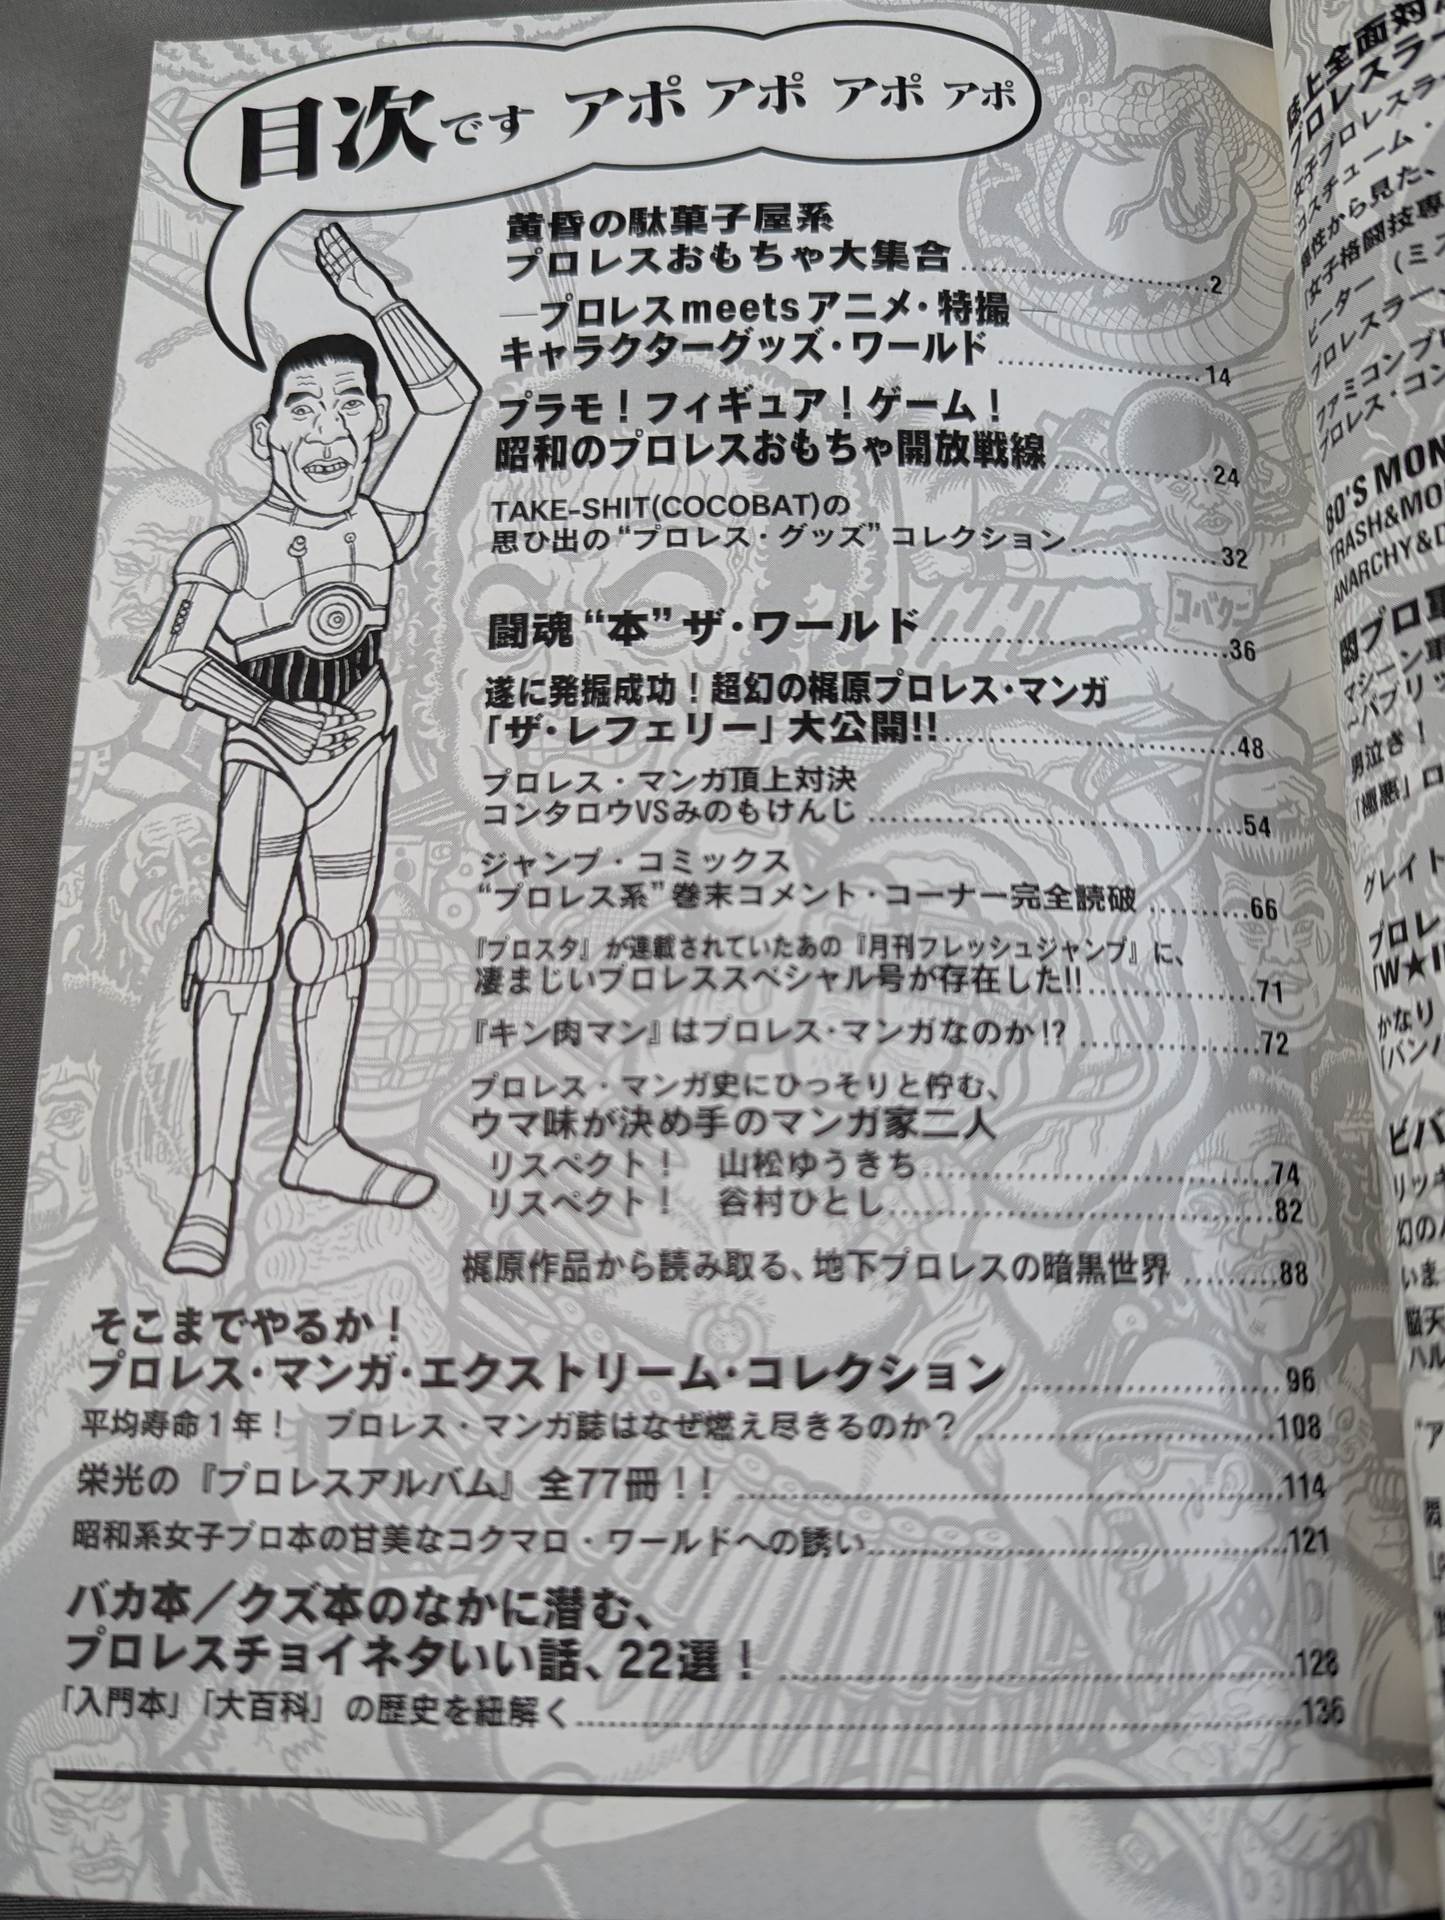 目次です アポ アポ アポ アポ
黄昏の駄菓子屋系
プロレスおもちゃ大集合 2
―プロレスmeetsアニメ・特撮―
キャラクターグッズ・ワールド 14
プラモ！フィギュア！ゲーム！
昭和のプロレスおもちゃ開放戦線 24
TAKE-SHIT(COCOBAT)の
思ひ出の“プロレス・グッズ”コレクション 32
闘魂“本”ザ・ワールド 36
遂に発掘成功！超幻の梶原プロレス・マンガ
「ザ・レフェリー」大公開!! 48
プロレス・マンガ頂上対決
コンタロウVSみのもけんじ 54
ジャンプ・コミックス
“プロレス系”巻末コメント・コーナー完全読破 66
『プロスタ』が連載されていたあの『月刊フレッシュジャンプ』に、
凄まじいプロレススペシャル号が存在した!! 71
『キン肉マン』はプロレス・マンガなのか!? 72
プロレス・マンガ史にひっそりと佇む、
ウマ味が決め手のマンガ家二人
リスペクト！ 山松ゆうきち 74
リスペクト！ 谷村ひとし 82
梶原作品から読み取る、地下プロレスの暗黒世界 88
そこまでやるか！
プロレス・マンガ・エクストリーム・コレクション 96
平均寿命1年！ プロレス・マンガ誌はなぜ燃え尽きるのか？ 108
栄光の『プロレスアルバム』全77冊！！ 114
昭和系女子プロ本の甘美なコクマロ・ワールドへの誘い 121
バカ本／クズ本のなかに潜む、
プロレスチョイネタいい話、22選！ 128
「入門本」「大百科」の歴史を紐解く 136
コバクニ
誌上全面対
プロレスラー
女子プロレスラ
コスチューム・
異性から見た、
女子格闘技専
ピーター（ミス
プロレスラー、
ファミコンブ
プロレス・コン
80'S MON
TRASH&MO
ANARCHY&D
闘プロ
マシーン軍
～パブリッ
男泣き！
「極悪」ロ
グレイト
プロレ
「W★I
かなり
「バンバ
ビバ
リッキ
幻の
いま
脳天
ハル
“ア